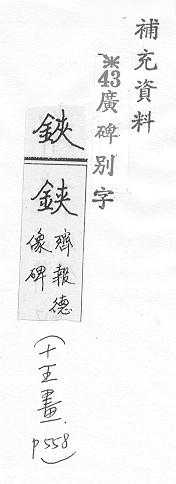 補充資料
※43廣碑別字
鋏
鋏
齊報德
像碑
(十五畫.p558)